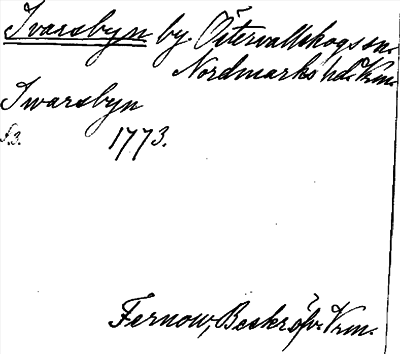 Ivarsbyn by. Östervallskogs sn.
Nordmarks hd. Vrm.
Ivarsbyn
s. 3. 1773.
Fernow, Beskr. öfv. Vrm.